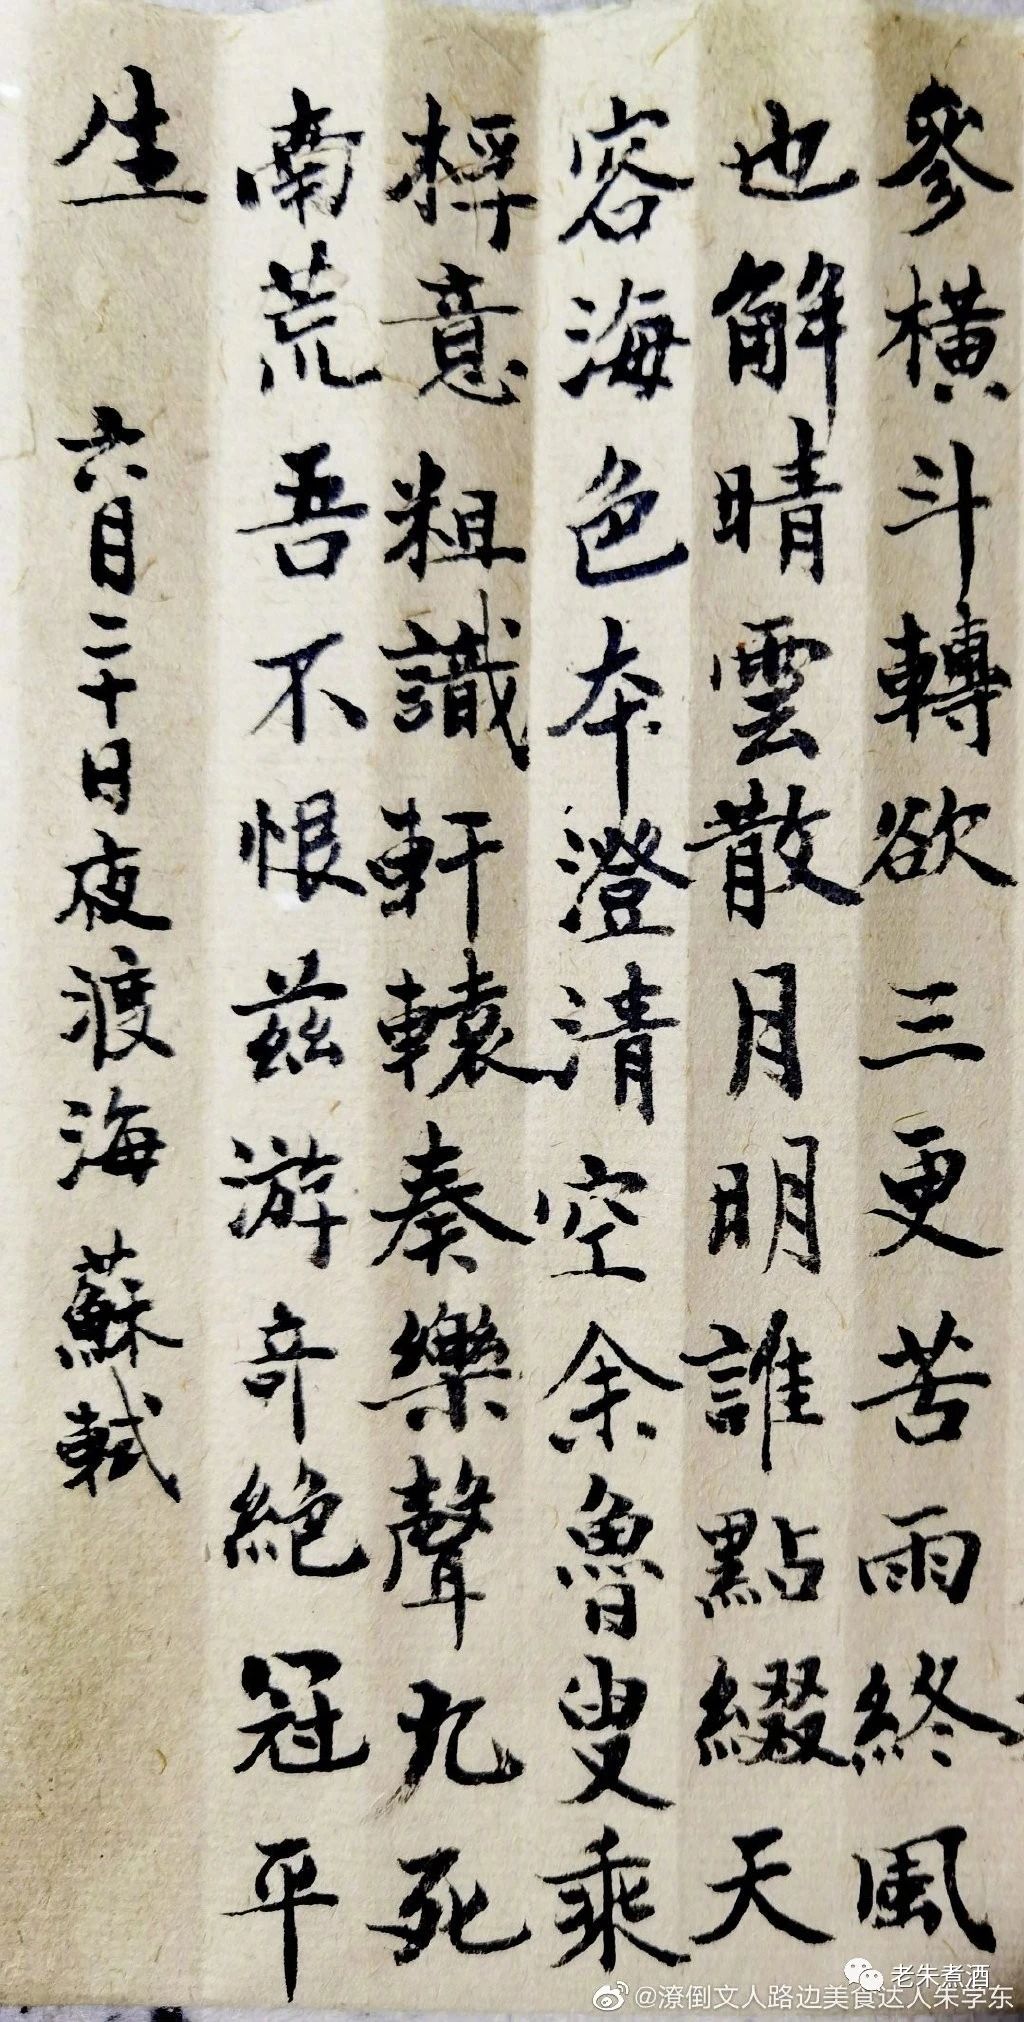 參橫斗轉欲三更苦雨終風
也解晴雲散月明誰點綴天
容海色本澄清空余魯叟乘
桴意粗識軒轅奏樂聲九死
南荒吾不恨茲游奇絕冠平
生 六月二十日夜渡海 蘇軾
老朱煮酒
@潦倒文人路边美食达人朱学东